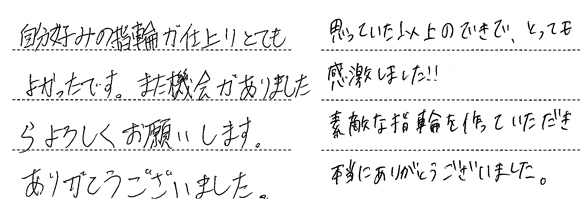 自分好みの指輪が仕上りとても
よかったです。また機会がありました
らよろしくお願いします。
ありがとうございました。
思っていた以上のできで、とっても
感激しました!!
素敵な指輪を作っていただき
本当にありがとうございました。